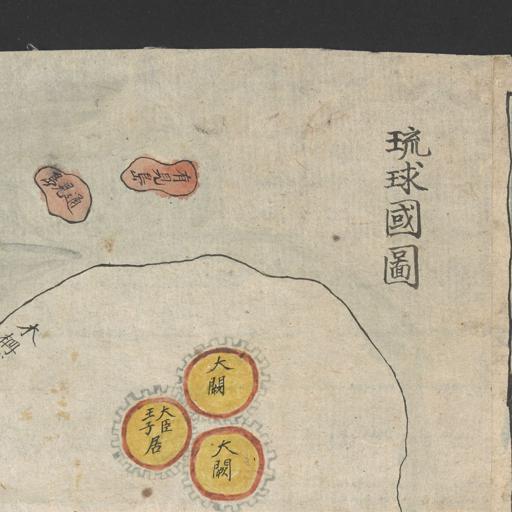 琉球國圖
有見島
通見島
大闕
大臣
王子
居
大闕
大